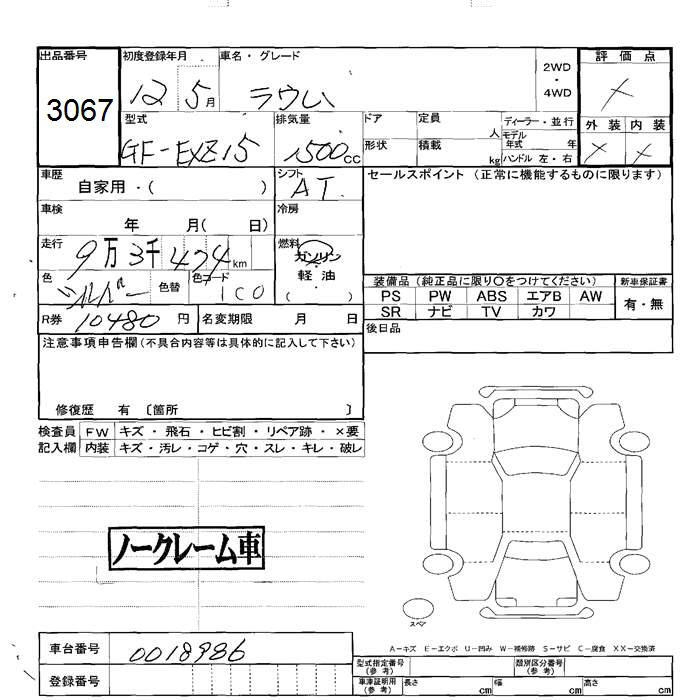 出品番号 初度登録年月 車名・グレード 評価点
3067 12 5月 ラウム 2WD・4WD
型式 排気量 ドア 定員 人 ディーラー・並行 外装 内装
GF-EXZ15 1500CC 形状 積載 kg モデル年式 年 ハンドル 左・右
車歴 自家用・( ) シフト AT セールスポイント (正常に機能するものに限ります)
車検 年 月( 日) 冷房
走行 9万3千474km 燃料 ガソリン・軽油 ( )
色 シルバー 色替 色コード 1C0 装備品 (純正品に限り○をつけてください) 新車保証書
PS PW ABS エアB AW 有・無
SR ナビ TV カワ
R券 10480円 名変期限 月 日 後日品
注意事項申告欄 (不具合内容等は具体的に記入して下さい)
修復歴 有 〔箇所 〕
検査員 FW キズ・飛石・ヒビ割・リペア跡・×要
記入欄 内装 キズ・汚レ・コゲ・穴・スレ・キレ・破レ
ノークレーム車
スペア
A－キズ E－エクボ U－凹み W－補修跡 S－サビ C－腐食 XX－交換済
車台番号 0018986 型式指定番号(参考) 類別区分番号(参考)
登録番号 車庫証明用(参考) 長さ cm 幅 cm 高さ cm